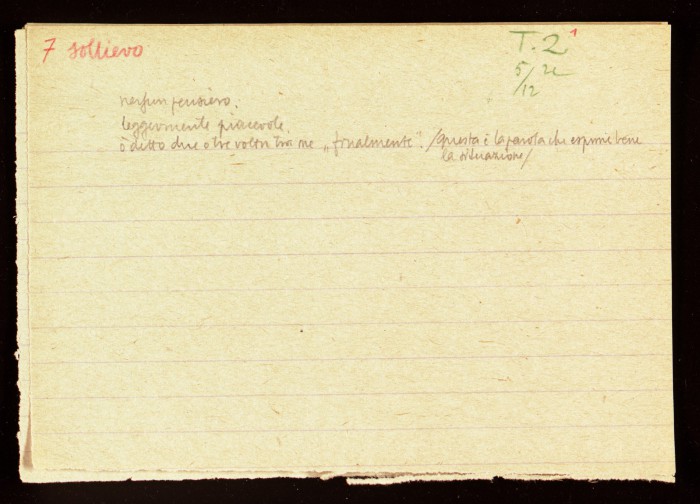 7 sollievo
T. 2¹
5/12 22
nessun pensiero.
leggermente piacevole.
ò detto due o tre volte tra me „finalmente". /questa è la parola che esprime bene
la situazione/